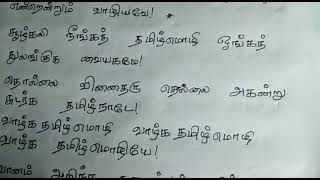 என்றென்றும் வாழியவே!
சூழ்கலி நீங்கத் தமிழ்மொழி ஓங்கத்
துலங்குக வையகமே!
தொல்லை வினைதரு தொல்லை அகன்று
சுடர்க தமிழ்நாடே!
வாழ்க தமிழ்மொழி வாழ்க தமிழ்மொழி
வாழ்க தமிழ்மொழியே!
வானம் அறிந்த